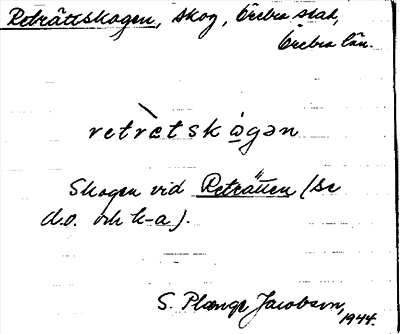 Reträttskogen, skog, Örebro stad,
Örebro län.
retrètskò̤gən
Skogen vid Reträtten (Se
d.o. och k-a).
S. Plænge Jacobson,
1944.